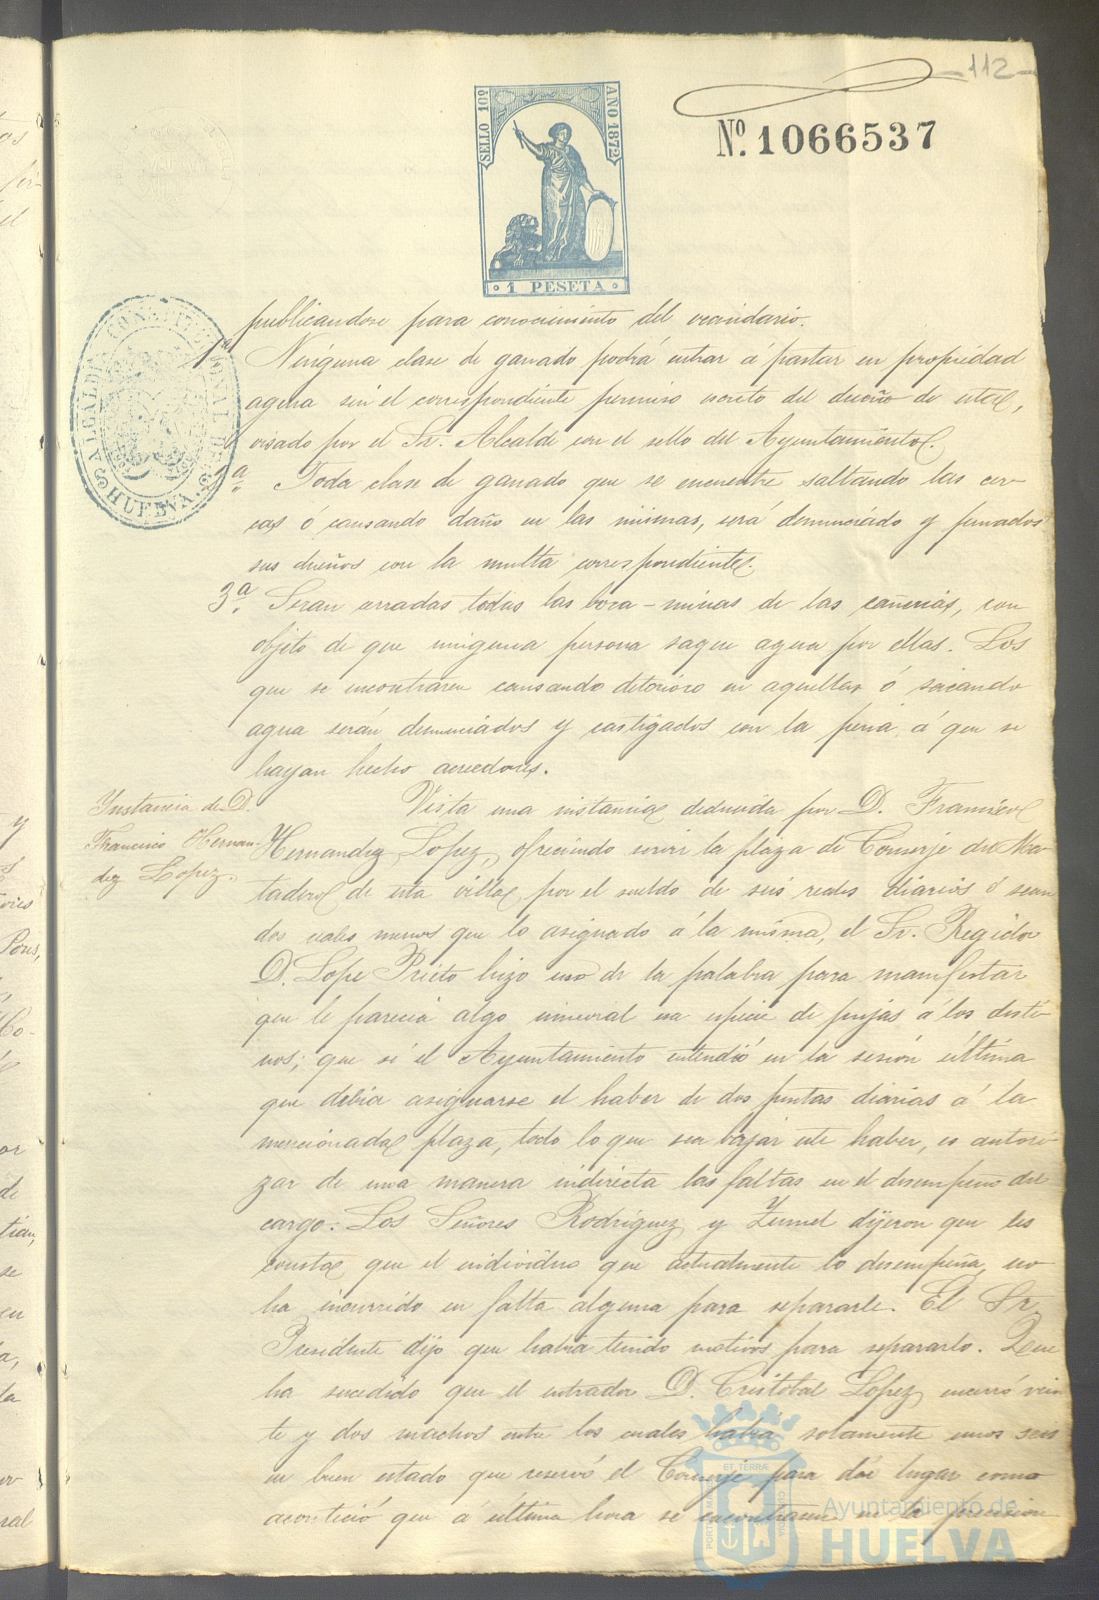 112
SELLO 10º
AÑO 1872
1 PESETA
Nº. 1066537
ALCALDIA CONSTITUCIONAL DE HUELVA
publicandose para conocimiento del vecindario.
1ª Ninguna clase de ganado podrá entrar á pastar en propiedad
agena sin el correspondiente permiso escrito del dueño de ella,
visado por el Sr. Alcalde con el sello del Ayuntamiento.
2ª. Toda clase de ganado que se encuentre saltando las cer-
cas ó causando daño en las mismas, será denunciado y penados
sus dueños con la multa correspondiente.
3ª. Seran cerradas todas las boca-minas de las cañerias, con
objeto de que ninguna persona saque agua por ellas. Los
que se encontraren causando deterioro en aquellas ó sacando
agua serán denunciados y castigados con la pena á que se
hayan hecho acreedores.
Ynstancia de D.
Francisco Hernan-
dez Lopez.
Vista una instancia deducida por D. Francisco
Hernandez Lopez, ofreciendo servir la plaza de Conserje del Ma-
tadero de esta villa por el sueldo de seis reales diarios ó sean
dos reales menos que lo asignado á la misma, el Sr. Regidor
D. Lope Prieto hizo uso de la palabra para manifestar
que le parecia algo inmoral esa especie de pujas á los desti-
nos; que si el Ayuntamiento entendió en la sesión última
que debia asignarse el haber de dos pesetas diarias á la
mencionada plaza, todo lo que sea bajar este haber, es autori-
zar de una manera indirecta las faltas en el desempeño del
cargo. Los Señores Rodriguez y Zunel dijeron que les
consta que el individuo que actualmente lo desempeña, no
ha incurrido en falta alguna para separarle. El Sr.
Presidente dijo que habia tenido motivos para separarlo. Que
ha sucedido que el entrador D. Cristobal Lopez encerró vein
te y dos machos entre los cuales habia solamente unos seis
en buen estado que reservó el Conserje para dar lugar como
aconteció que á última hora se encontrasen en la precision
Ayuntamiento de
HUELVA